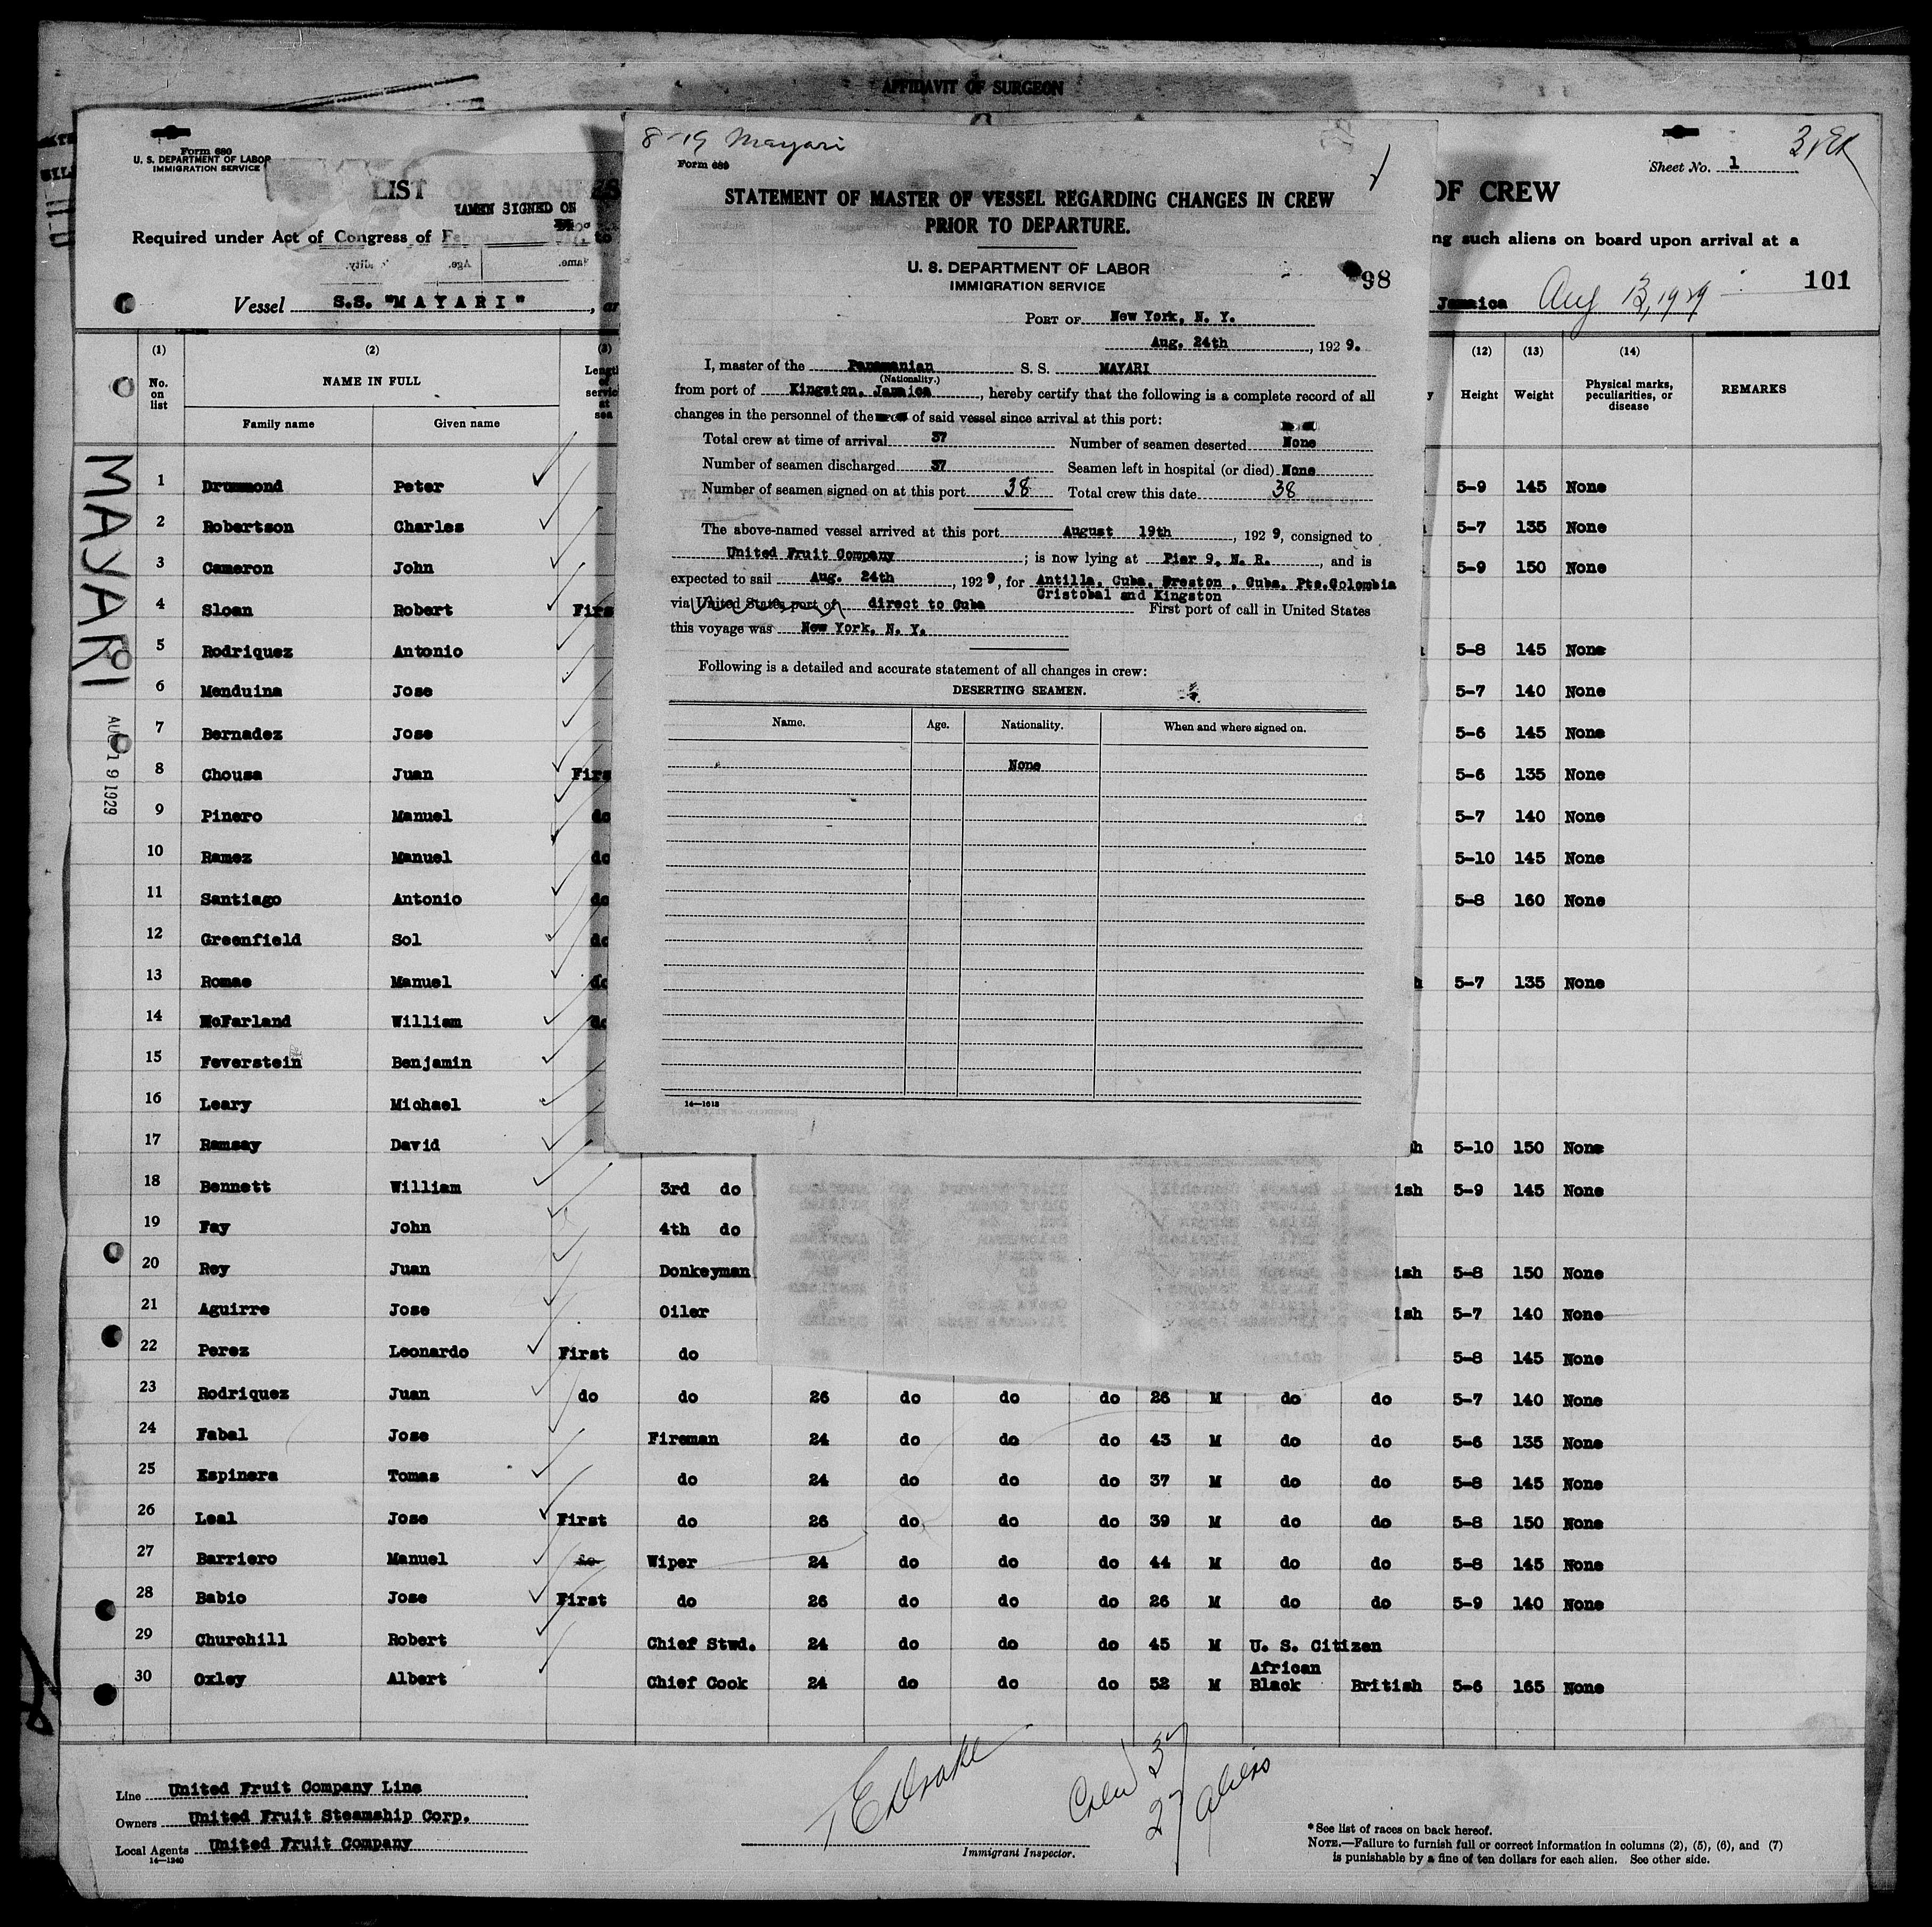 AFFIDAVIT OF SURGEON
Form 680
U. S. DEPARTMENT OF LABOR
IMMIGRATION SERVICE
LIST OR MANIFES
SIGNED ON
Required under Act of Congress of February
Vessel S.S. "MAYARI"
OF CREW
Sheet No. 1
ng such aliens on board upon arrival at a
Jamaica Aug 13, 1929
101
8-19 Mayari
Form 689
STATEMENT OF MASTER OF VESSEL REGARDING CHANGES IN CREW
PRIOR TO DEPARTURE.
U. S. DEPARTMENT OF LABOR
IMMIGRATION SERVICE
98
PORT OF New York, N. Y.
Aug. 24th, 1929.
I, master of the Panamanian S. S. MAYARI
(Nationality.)
from port of Kingston, Jamaica, hereby certify that the following is a complete record of all
changes in the personnel of the crew of said vessel since arrival at this port:
Total crew at time of arrival 37 Number of seamen deserted None
Number of seamen discharged 37 Seamen left in hospital (or died) None
Number of seamen signed on at this port 38 Total crew this date 38
The above-named vessel arrived at this port August 19th, 1929, consigned to
United Fruit Company; is now lying at Pier 9, N. R., and is
expected to sail Aug. 24th, 1929, for Antilla, Cuba, Preston, Cuba, Pto.Colombia
Cristobal and Kingston
via United States port of direct to Cuba First port of call in United States
this voyage was New York, N. Y.
Following is a detailed and accurate statement of all changes in crew:
DESERTING SEAMEN.
Name. Age. Nationality. When and where signed on.
None
14—1013
MAYARI
AUG 19 1929
(1) (2) (3) (12) (13) (14)
No. on list NAME IN FULL Length of service at sea Height Weight Physical marks, peculiarities, or disease REMARKS
Family name Given name
1 Drummond Peter 5-9 145 None
2 Robertson Charles 5-7 135 None
3 Cameron John 5-9 150 None
4 Sloan Robert Firs
5 Rodriquez Antonio 5-8 145 None
6 Menduina Jose 5-7 140 None
7 Bernadez Jose 5-6 145 None
8 Chousa Juan Firs 5-6 135 None
9 Pinero Manuel do 5-7 140 None
10 Ramez Manuel do 5-10 145 None
11 Santiago Antonio do 5-8 160 None
12 Greenfield Sol do
13 Romae Manuel do h 5-7 135 None
14 McFarland William do
15 Feverstein Benjamin
16 Leary Michael
17 Ramsay David h 5-10 150 None
18 Bennett William 3rd do ish 5-9 145 None
19 Fay John 4th do
20 Rey Juan Donkeyman ish 5-8 150 None
21 Aguirre Jose Oiler ish 5-7 140 None
22 Perez Leonardo First do 5-8 145 None
23 Rodriquez Juan do do 26 do do do 26 M do do 5-7 140 None
24 Fabal Jose Fireman 24 do do do 43 M do do 5-6 135 None
25 Espinera Tomas do 24 do do do 37 M do do 5-8 145 None
26 Leal Jose First do 26 do do do 39 M do do 5-8 150 None
27 Barriero Manuel do Wiper 24 do do do 44 M do do 5-8 145 None
28 Babio Jose First do 26 do do do 26 M do do 5-9 140 None
29 Churchill Robert Chief Stwd. 24 do do do 45 M U. S. Citizen
30 Oxley Albert Chief Cook 24 do do do 52 M African Black British 5-6 165 None
Line United Fruit Company Line
Owners United Fruit Steamship Corp.
Local Agents United Fruit Company
14—1240
Immigrant Inspector.
Crew 37
27 aliens
*See list of races on back hereof.
NOTE.—Failure to furnish full or correct information in columns (2), (5), (6), and (7)
is punishable by a fine of ten dollars for each alien. See other side.